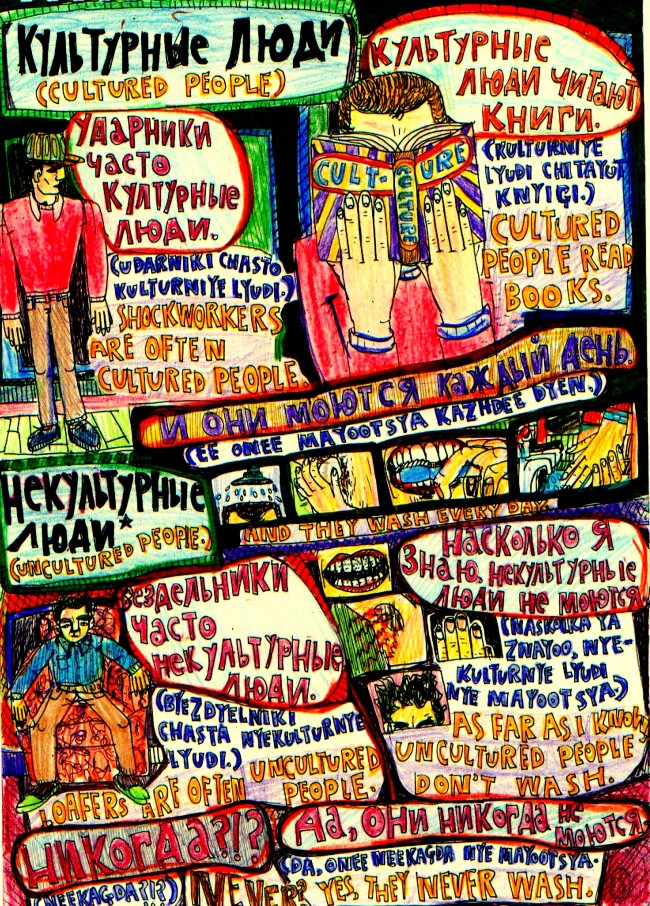 КУЛЬТУРНЫЕ ЛЮДИ
(CULTURED PEOPLE)
КУЛЬТУРНЫЕ
ЛЮДИ ЧИТАЮТ
КНИГИ.
CULT-URE
CULTURE
(KULTURNIYE
LYUDI CHITAYUT
KNYIGI.)
CULTURED
PEOPLE READ
BOOKS.
УДАРНИКИ
ЧАСТО
КУЛТУРНЫЕ
ЛЮДИ.
(UDARNIKI CHASTO
KULTURNIYE LYUDI.)
SHOCKWORKERS
ARE OFTEN
CULTURED PEOPLE.
И ОНИ МОЮТСЯ КАЖДЫЙ ДЕНЬ.
(EE ONEE MAYOOTSYA KAZHDEE DYEN.)
AND THEY WASH EVERY DAY.
НЕКУЛЬТУРНЫЕ
ЛЮДИ*
(UNCULTURED PEOPLE.)
БЕЗДЕЛЬНИКИ
ЧАСТО
НЕКУЛЬТУРНЫЕ
ЛЮДИ.
(BYEZDYELNIKI
CHASTA NYEKULTURNYE
LYUDI.)
LOAFERS ARE OFTEN UNCULTURED
PEOPLE.
НАСКОЛЬКО Я
ЗНАЮ, НЕКУЛЬТУРНЫЕ
ЛЮДИ НЕ МОЮТСЯ
(NASKOLKA YA
ZNAYOO, NYE-
KULTURNYE LYUDI
NYE MAYOOTSYA.)
AS FAR AS I KNOW
UNCULTURED PEOPLE
DON'T WASH.
НИКОГДА?!?
(NEEKAGDA?!?)
NEVER?
ДА, ОНИ НИКОГДА НЕ
МОЮТСЯ
(DA, ONEE NEEKAGDA NYE MAYOOTSYA.
YES, THEY NEVER WASH.